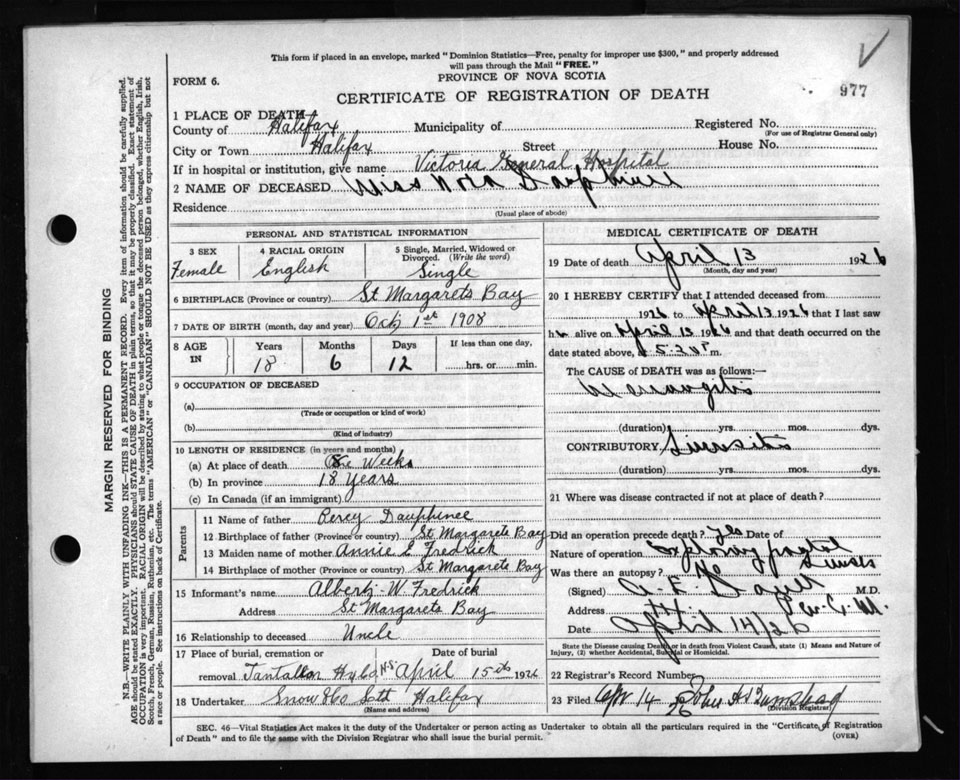 This form if placed in an envelope, marked "Dominion Statistics—Free, penalty for improper use $300," and properly addressed
will pass through the Mail "FREE."
FORM 6.
PROVINCE OF NOVA SCOTIA
977
CERTIFICATE OF REGISTRATION OF DEATH
1 PLACE OF DEATH
County of Halifax Municipality of Registered No.
(For use of Registrar General only)
City or Town Halifax Street House No.
If in hospital or institution, give name Victoria General Hospital
2 NAME OF DECEASED Miss Nora Dauphinee
Residence
(Usual place of abode)
PERSONAL AND STATISTICAL INFORMATION
3 SEX 4 RACIAL ORIGIN 5 Single, Married, Widowed or
Divorced. (Write the word)
Female English Single
6 BIRTHPLACE (Province or country) St Margarets Bay
7 DATE OF BIRTH (month, day and year) Oct 1st 1908
8 AGE IN Years Months Days If less than one day,
18 6 12 hrs. or min.
9 OCCUPATION OF DECEASED
(a)
(Trade or occupation or kind of work)
(b)
(Kind of industry)
10 LENGTH OF RESIDENCE (in years and months)
(a) At place of death Weeks
(b) In province 18 Years
(c) In Canada (if an immigrant)
Parents
11 Name of father Percy Dauphinee
12 Birthplace of father (Province or country) St Margarets Bay
13 Maiden name of mother Annie E Fredrick
14 Birthplace of mother (Province or country) St Margarets Bay
15 Informant's name Albert W Fredrick
Address St Margarets Bay
16 Relationship to deceased Uncle
17 Place of burial, cremation or
removal Tantallon NS April 15th 1926
18 Undertaker Snow & Co Halifax
(Name and address)
MEDICAL CERTIFICATE OF DEATH
19 Date of death April 13 1926
(Month, day and year)
20 I HEREBY CERTIFY that I attended deceased from
1926 to April 13 1926 that I last saw
h alive on April 13 1926 and that death occurred on
date stated above, at 5.30 m.
The CAUSE of DEATH was as follows:—
Meningitis
(duration) yrs. mos. dys.
CONTRIBUTORY Sinusitis
(duration) yrs. mos. dys.
21 Where was disease contracted if not at place of death?
Did an operation precede death? Yes Date of
Nature of operation Exploring frontal
Sinuses
Was there an autopsy? no
(Signed) M.D.
Address
Date April 14/26
State the Disease causing Death, or in death from Violent Causes, state (1) Means and Nature of
Injury, (2) whether Accidental, Suicidal or Homicidal.
22 Registrar's Record Number
23 Filed Apr 14 26 John A
(Division Registrar)
SEC. 46—Vital Statistics Act makes it the duty of the Undertaker or person acting as Undertaker to obtain all the particulars required in the "Certificate of Registration
of Death" and to file the same with the Division Registrar who shall issue the burial permit.
(OVER)
MARGIN RESERVED FOR BINDING
N.B.—WRITE PLAINLY WITH UNFADING INK—THIS IS A PERMANENT RECORD. Every item of information should be carefully supplied.
AGE should be stated EXACTLY. PHYSICIANS should STATE CAUSE OF DEATH in plain terms, so that it may be properly classified. Exact statement of
OCCUPATION is very important. RACIAL ORIGIN will be described by stating to what people or tongue the deceased person belonged, whether English, Irish,
Scotch, French, German, Russian, Ruthenian, etc. The terms "AMERICAN" or "CANADIAN" SHOULD NOT BE USED as they express citizenship but not
a race or people. See instructions on back of Certificate.